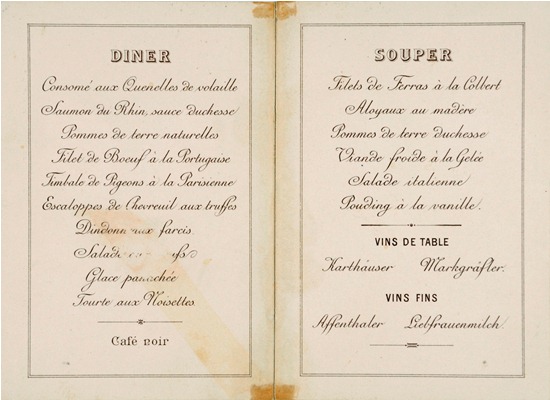 DINER
Consomé aux Quenelles de volaille
Saumon du Rhin, sauce duchesse
Pommes de terre naturelles
Filet de Boeuf à la Portugaise
Timbale de Pigeons à la Parisienne
Escaloppes de Chevreuil aux truffes
farcis
Glace
Tourte aux Noisettes
Café noir
SOUPER
Filets de Ferras à la Colbert
Aloyaux au madère
Pommes de terre duchesse
Viande froide à la Gelée
Salade italienne
Pouding à la vanille.
VINS DE TABLE
Karthäuser Markgräfler.
VINS FINS
Affenthaler Liebfrauenmilch.